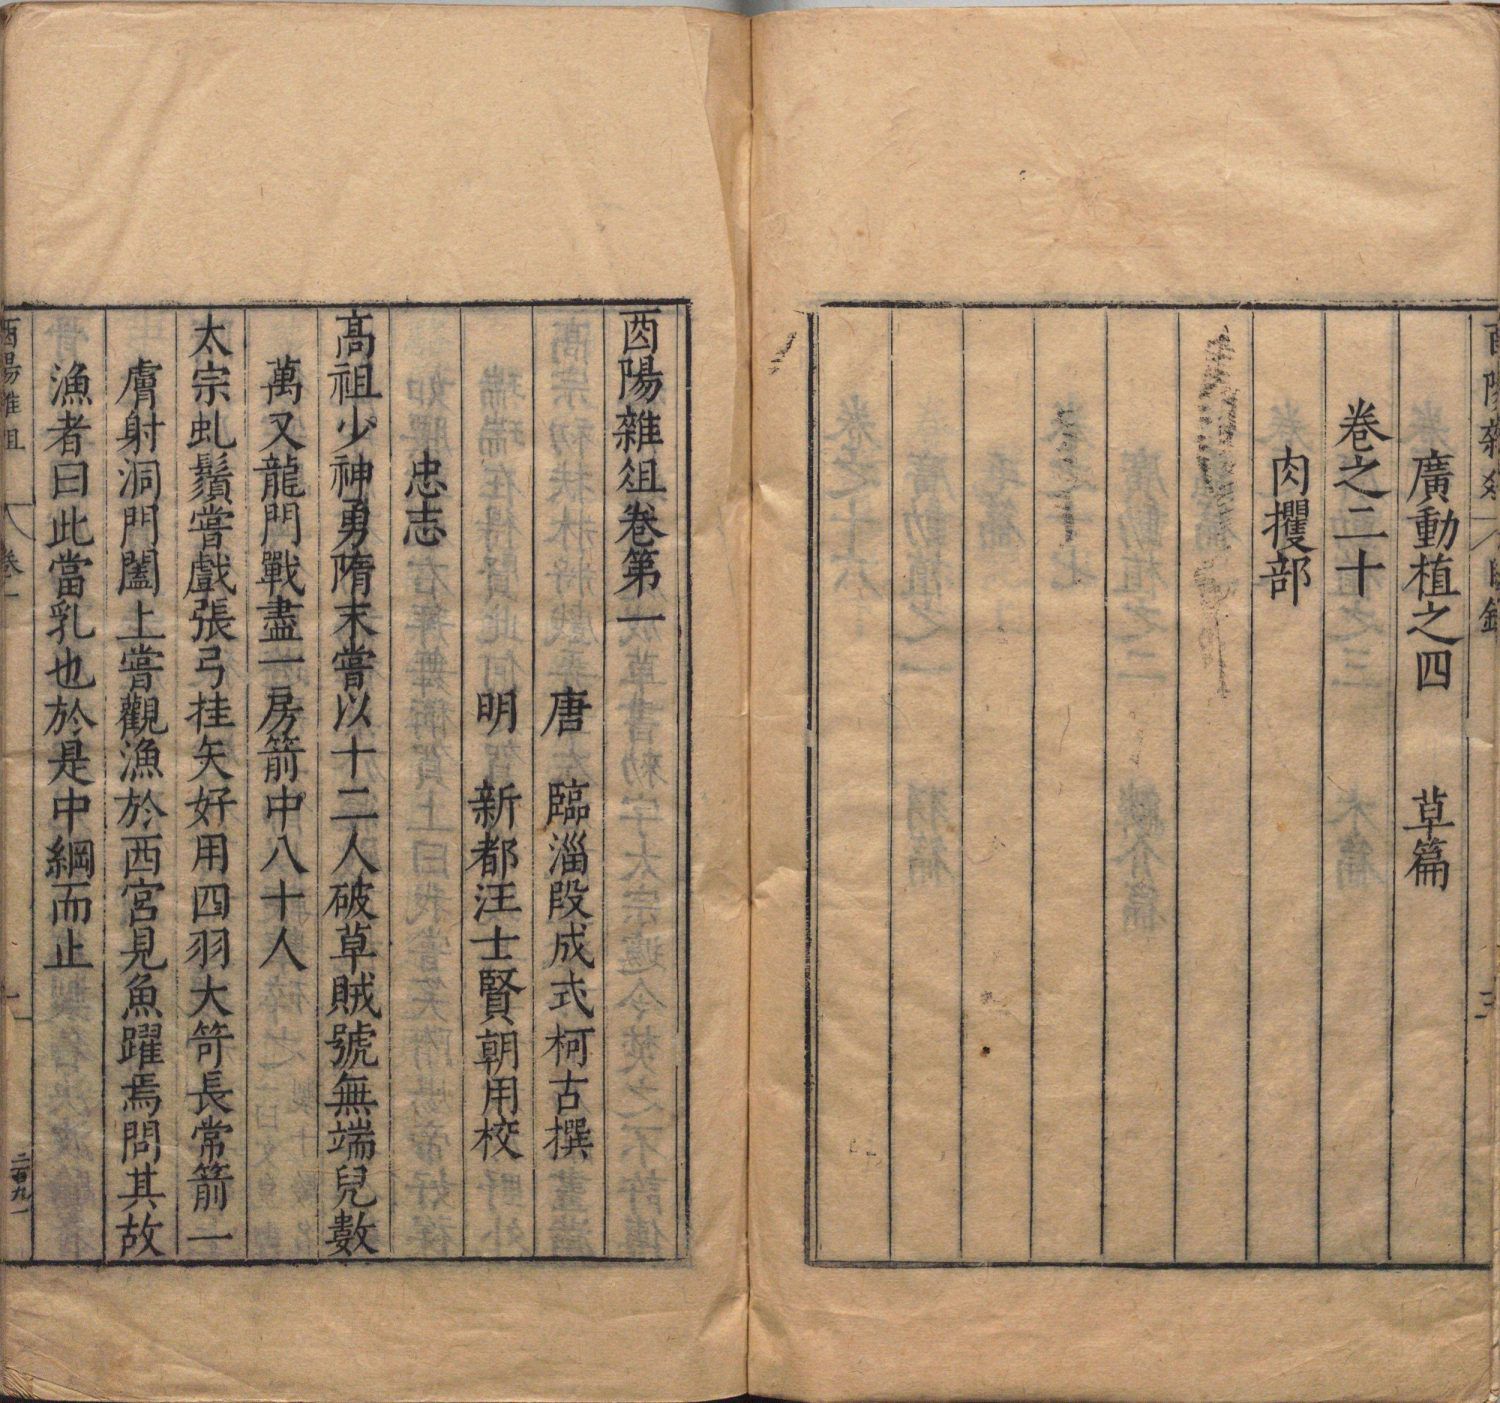 廣動植之四　草篇
卷之二十
肉攫部
酉陽雜俎卷第一
唐　臨淄段成式柯古撰
明　新都汪士賢朝用校
忠志
高祖少神勇隋末嘗以十二人破草賊號無端兒數
萬又龍門戰盡一房箭中八十人
太宗虬鬚嘗戲張弓挂矢好用四羽大笴長常箭一
膚射洞門闔上嘗觀漁於西宮見魚躍焉問其故
漁者曰此當乳也於是中綱而止
酉陽雜俎　卷一　一
二百九一